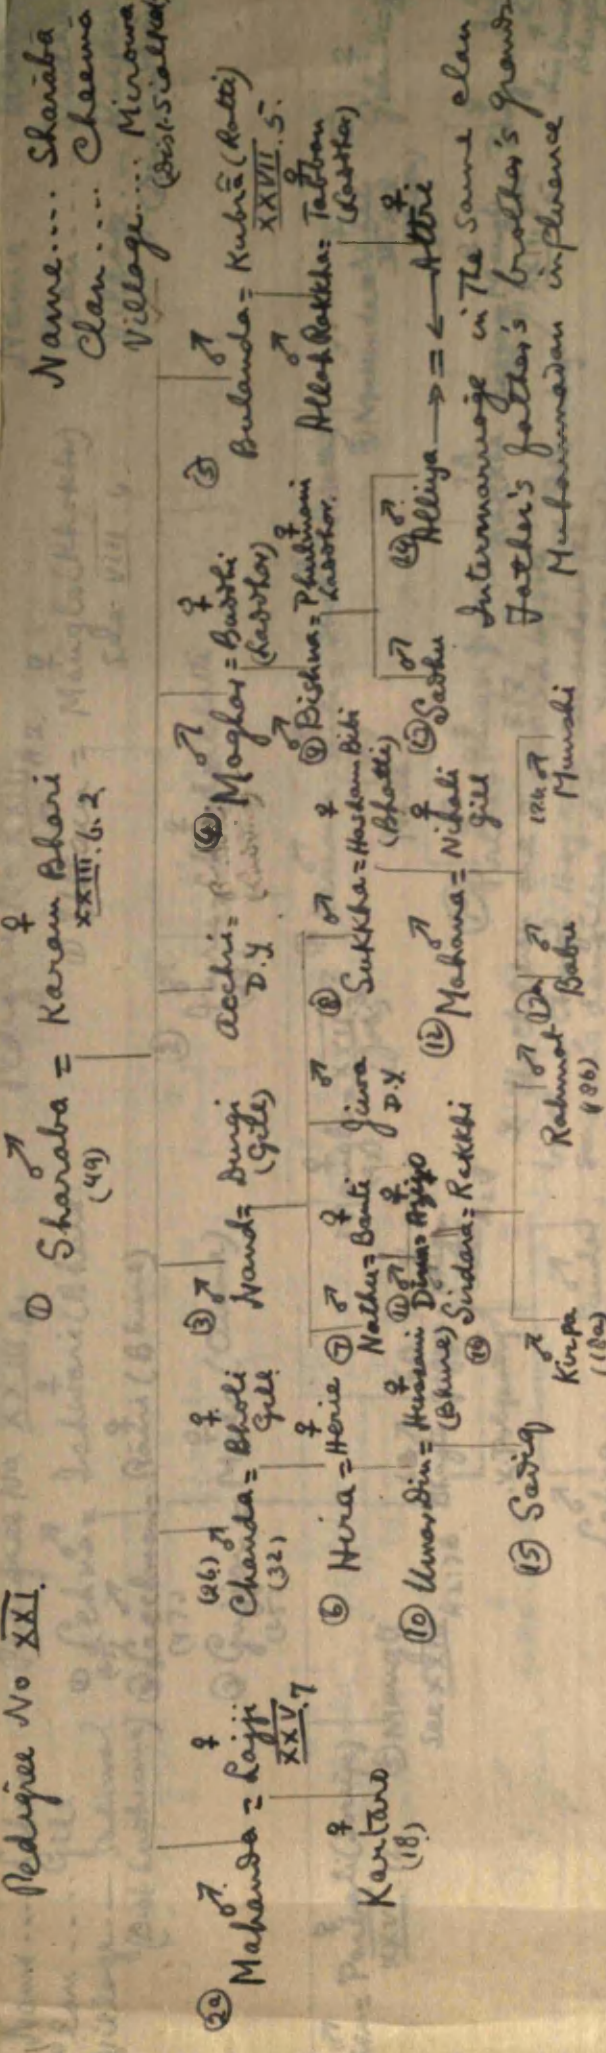 Pedigree No XXI.
Name.... Sharaba
Clan.... Cheema
Village.... Mirowa
(Dist. Sialkot
① ♂ Sharaba = Karam Bhari ♀
(49) XXIII.6.2
②a ♂ Mahanda = Lajji ♀
XXV.7
(26) ♂ Chanda = Bholi ♀
(32) Gill
③ ♂ Nand = Durgi
(Gill)
Acchi =
D.Y
④ ♂ Maghar = Buddhi ♀
(Ladhar)
⑤ ♂ Bulanda = Kubra (Ratti)
XXVII.5.
♀ Kartaro
(18)
⑥ Hira = Herie ♀
⑦ ♂ Nathu = Banti ♀
♂ Jiwa
D.Y
⑧ ♂ Sukkha = Hassan Bibi ♀
(Bhatti)
⑨ ♂ Bishna = Phulmani ♀
Ladhar
♂ Allah Rakkha = Tabban ♀
(Ladhar)
⑩ Umar Din = Hussaini ♀
(Bhure)
⑪ ♂ Dina = ♀
⑯ Sirdara = Rakkhi
⑫ ♂ Mahana = Nihali ♀
Gill
♂ Sadhu
♂ Alliya → = ← Attri ♀
⑮ Sadiq
♂ Kirpa
(18a)
♂ Rahmat
(18b)
♂ Babu
12b ♂ Munshi
Intermarriage in the same clan
Father's father's brother's grand
Muhammadan influence